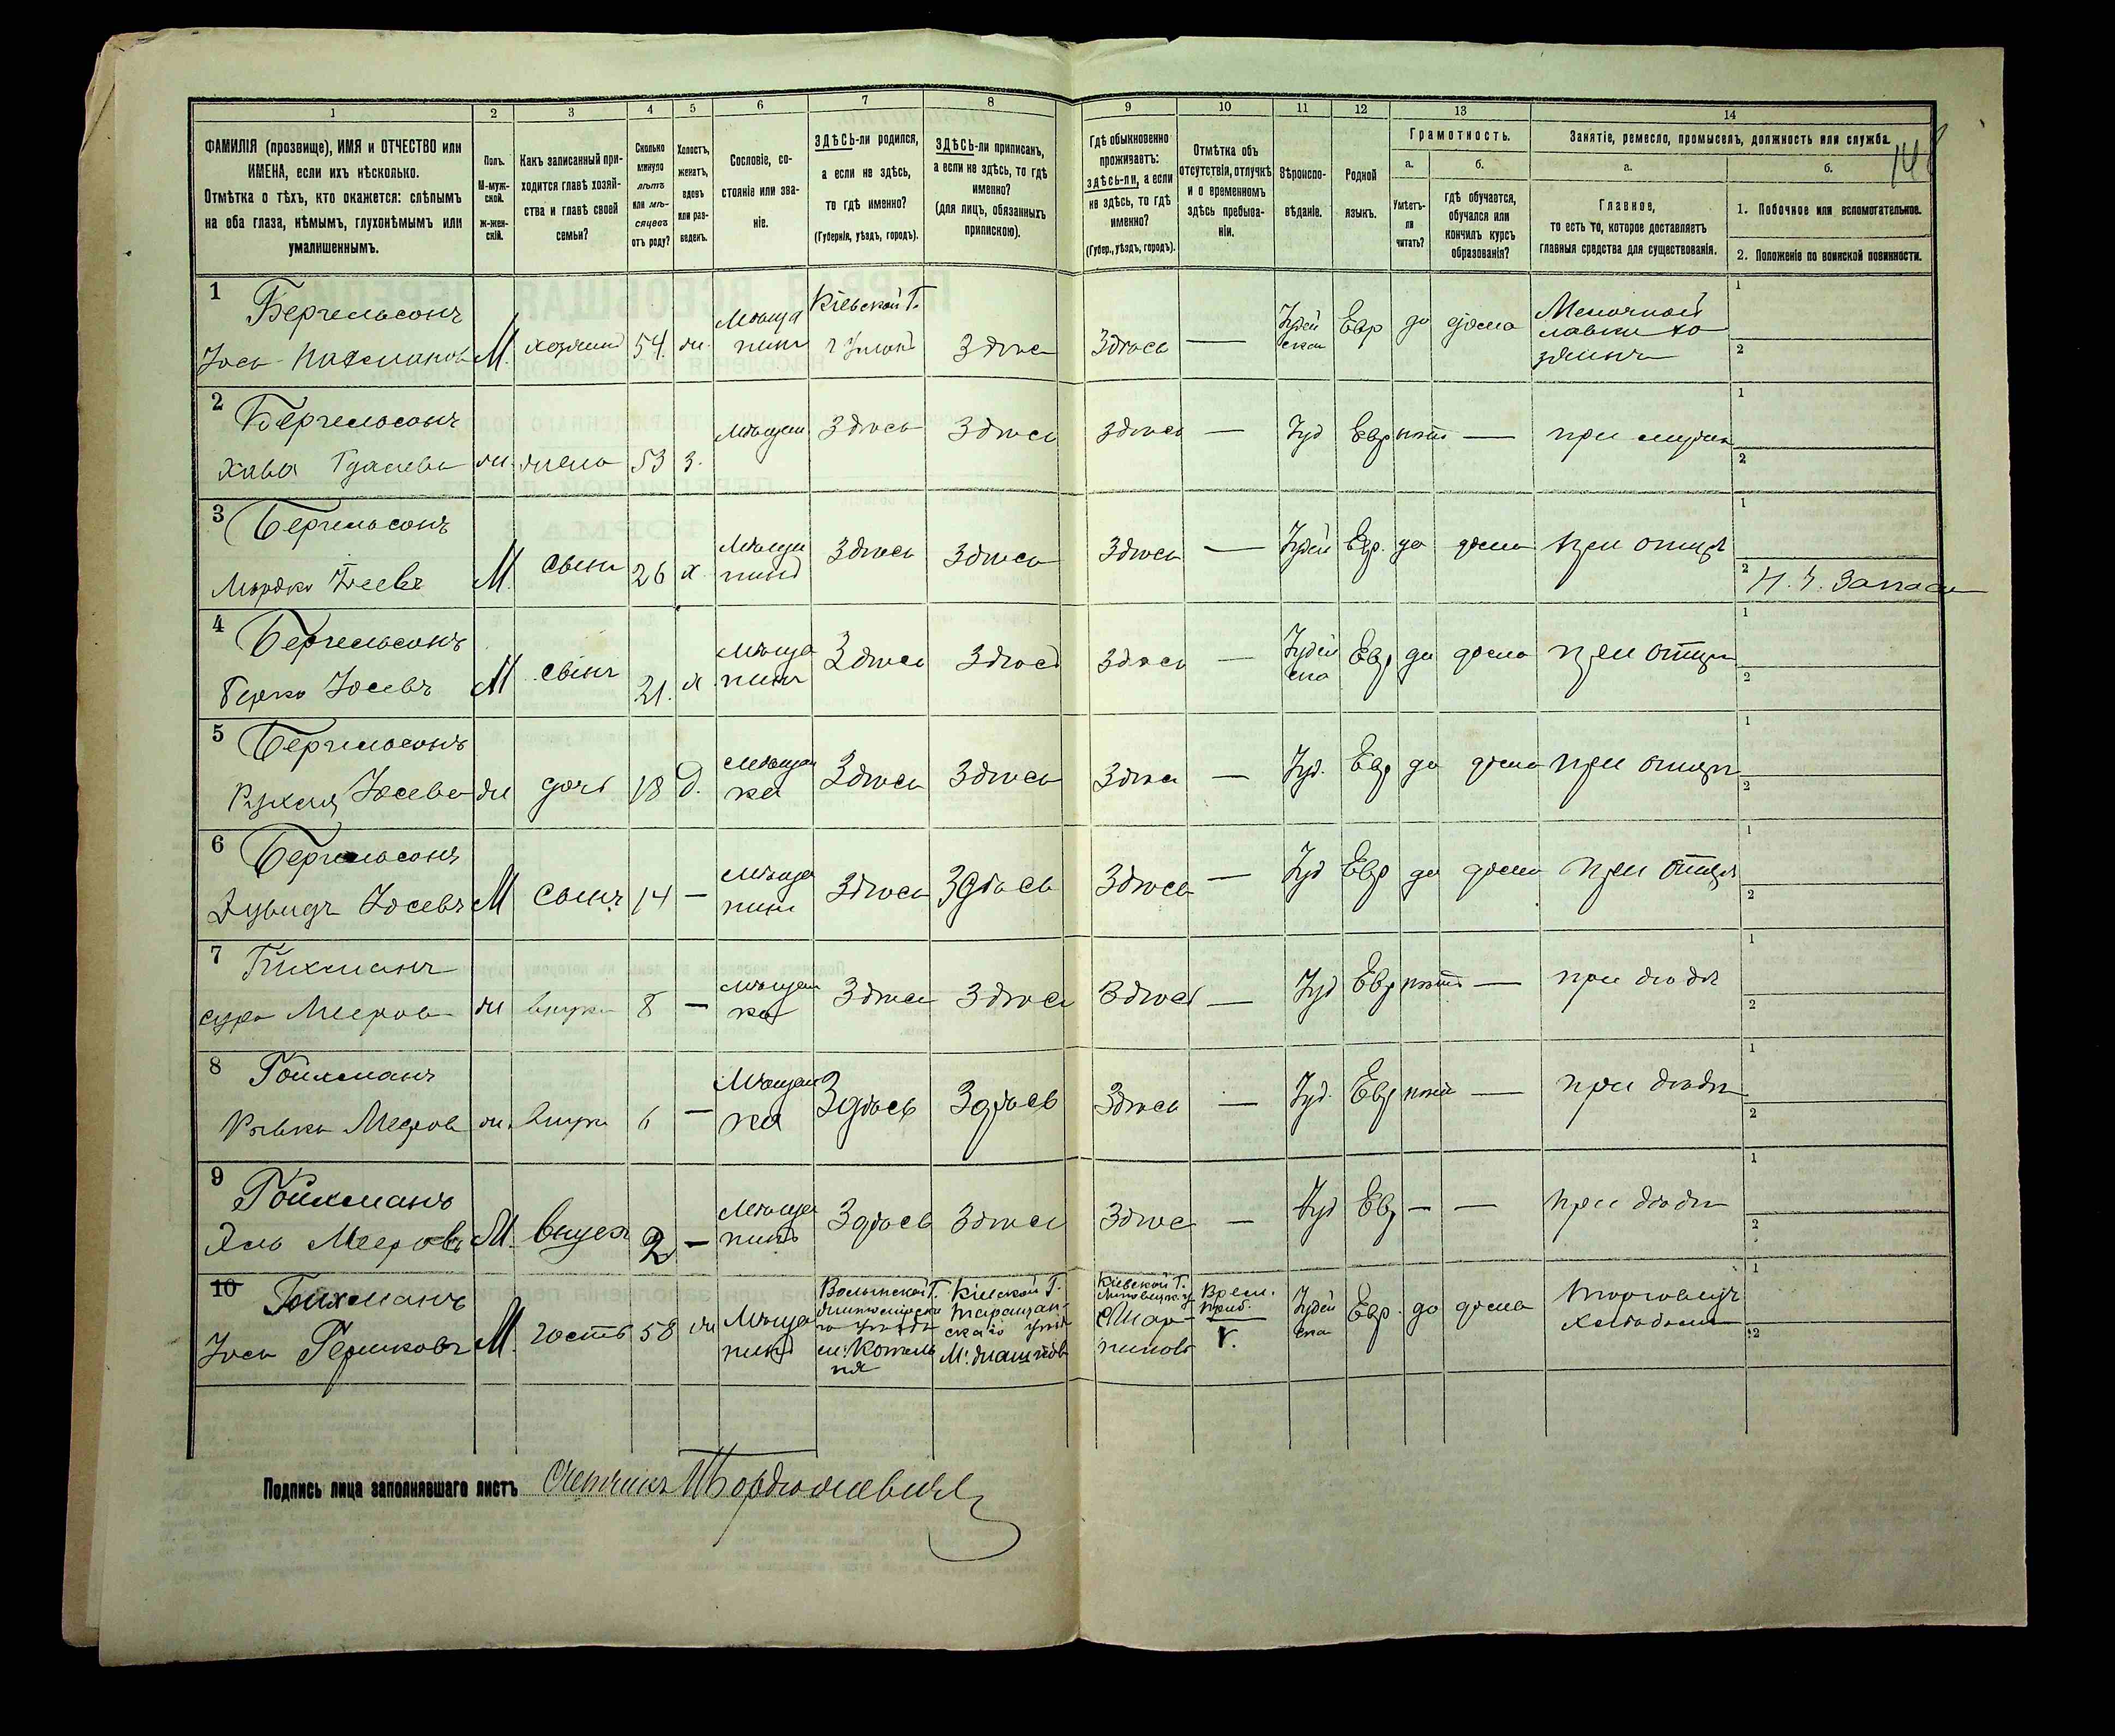 1 2 3 4 5 6 7 8 9 10 11 12 13 14
ФАМИЛІЯ (прозвище), ИМЯ и ОТЧЕСТВО или
ИМЕНА, если ихъ нѣсколько.
Отмѣтка о тѣхъ, кто окажется: слѣпымъ
на оба глаза, нѣмымъ, глухонѣмымъ или
умалишеннымъ.
Полъ.
М-муж-
ской.
Ж-жен-
скій.
Какъ записанный при-
ходится главѣ хозяй-
ства и главѣ своей
семьи?
Сколько
минуло
лѣтъ
или мѣ-
сяцевъ
отъ роду?
Холостъ,
женатъ,
вдовъ
или раз-
веденъ.
Сословіе, со-
стояніе или зва-
ніе.
ЗДѢСЬ-ли родился,
а если не здѣсь,
то гдѣ именно?
(Губернія, уѣздъ, городъ).
ЗДѢСЬ-ли приписанъ,
а если не здѣсь, то гдѣ
именно?
(для лицъ, обязанныхъ
припискою).
Гдѣ обыкновенно
проживаетъ:
здѣсь-ли, а если
не здѣсь, то гдѣ
именно?
(Губер., уѣздъ, городъ).
Отмѣтка объ
отсутствіи, отлучкѣ
и о временномъ
здѣсь пребыва-
ніи.
Вѣроиспо-
вѣданіе.
Родной
языкъ.
Грамотность.
а.
Умѣетъ-
ли
читать?
б.
гдѣ обучается,
обучался или
кончилъ курсъ
образованія?
Занятіе, ремесло, промыселъ, должность или служба.
а.
Главное,
то есть то, которое доставляетъ
главныя средства для существованія.
б.
1. Побочное или вспомогательное.
2. Положеніе по воинской повинности.
1 Бергельсонъ
Іось М. хозяинъ 54. ж. Мѣща
нинъ Кіевской Г. Здѣсь Здѣсь — Іудей
ская Евр да дома Мелочной
лавки хо
зяинъ 1 2
2 Бергельсонъ
Хава ж. жена 53 з. Мѣщан Здѣсь Здѣсь Здѣсь — Іуд Евр нѣтъ — при мужѣ 1 2
3 Бергельсонъ
Мордко М. сынъ 26 х. Мѣща
нинъ Здѣсь Здѣсь Здѣсь — Іудей Евр. да дома при отцѣ 1 2 Запаса
4 Бергельсонъ
Берко Іосевъ М сынъ 21. х Мѣща
нинъ Здѣсь Здѣсь Здѣсь — Іудей
ска Евр да дома при отцѣ 1 2
5 Бергельсонъ
Рухля Іосева ж дочь 18 д. Мѣщан
ка Здѣсь Здѣсь Здѣсь — Іуд. Евр да дома при отцѣ 1 2
6 Бергельсонъ
Дувидъ Іосевъ М сынъ 14 — Мѣща
нинъ Здѣсь Здѣсь Здѣсь — Іуд Евр да дома при отцѣ 1 2
7 Гойхманъ
Сура Меерова ж внучка 8 — Мѣщан
ка Здѣсь Здѣсь Здѣсь — Іуд Евр нѣтъ — при дѣдѣ 1 2
8 Гойхманъ
Ривка Меерова ж. внучка 6 — Мѣщан
ка Здѣсь Здѣсь Здѣсь — Іуд. Евр нѣтъ — при дѣдѣ 1 2
9 Гойхманъ
Мееровъ М. внукъ 2 — Мѣща
нинъ Здѣсь Здѣсь Здѣсь — Іуд Евр — — при дѣдѣ 1 2
10 Гойхманъ
Іось Гершковъ М. гость 58 ж Мѣща
нинъ Волынской Г.
Житомірска
го уѣзда
м. Котель
ня Кіевской Г.
Таращан-
скаго уѣзда
М. Жашковъ Кіевской Г.
Липовецк. у. Врем.
преб. Іудей
ска Евр. да дома торговецъ
хлѣбомъ 1 2
Подпись лица заполнявшаго листъ Счетчикъ